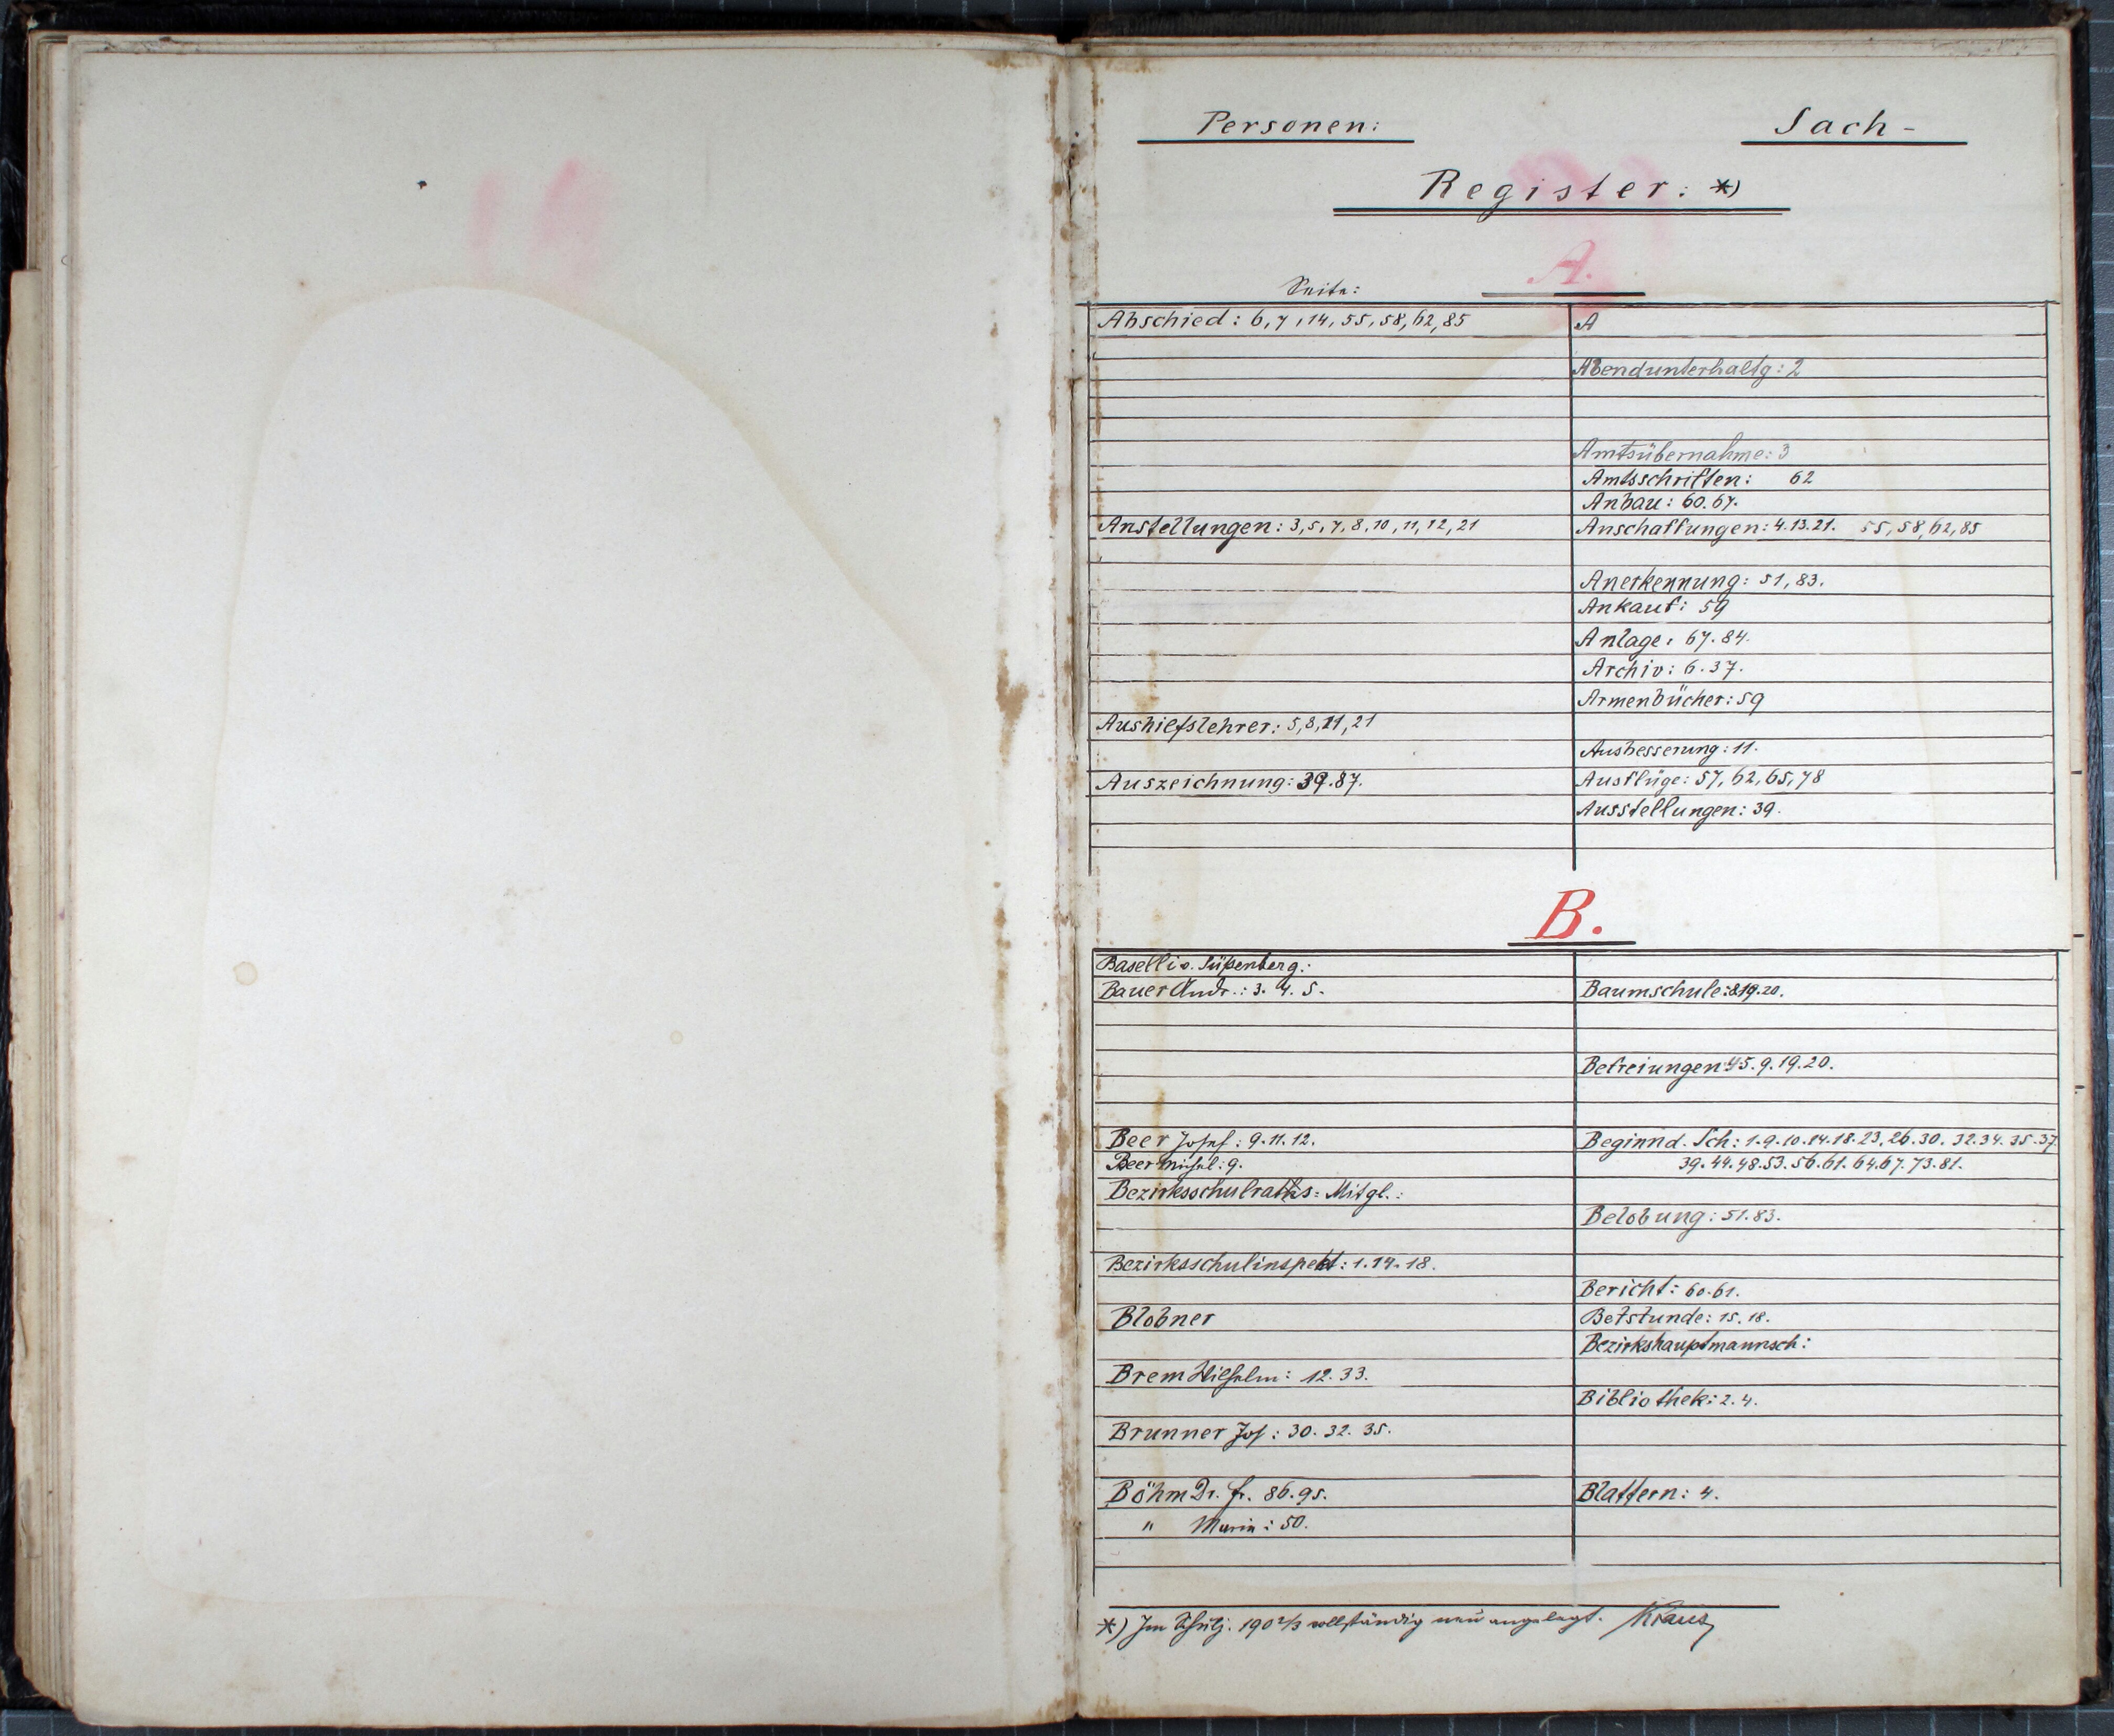 Personen: Sach-
Register: *)
A.
Seite:
Abschied: 6, 7, 14, 55, 58, 62, 85
A
Abendunterhaltg: 2
Amtsübernahme: 3
Amtsschriften: 62
Anbau: 60. 67.
Anstellungen: 3, 5, 7, 8, 10, 11, 12, 21
Anschaffungen: 4. 13. 21. 55, 58, 62, 85
Anerkennung: 51, 83.
Ankauf: 59
Anlage: 67. 84.
Archiv: 6. 37.
Armenbücher: 59
Aushilfslehrer: 5, 8, 11, 21
Ausbesserung: 11.
Auszeichnung: 39. 87.
Ausflüge: 57, 62, 65, 78
Ausstellungen: 39.
B.
Baselli v. Süßenberg:
Bauer Andr.: 3. 4. 5.
Baumschule: 8 19. 20.
Befreiungen: 4 5. 9. 19. 20.
Beer Josef: 9. 11. 12.
Beginn d. Sch: 1. 9. 10. 14. 18. 23. 26. 30. 32. 34. 35. 37
Beer Michl: 9.
39. 44. 48. 53. 56. 61. 64. 67. 73. 81.
Bezirksschulraths-Mitgl.:
Belobung: 51. 83.
Bezirksschulinspekt: 1. 14. 18.
Bericht: 60. 61.
Blobner
Betstunde: 15. 18.
Bezirkshauptmannsch:
Brem Wilhelm: 12. 33.
Bibliothek: 2. 4.
Brunner Jos: 30. 32. 35.
Böhm Dr. Fr. 86. 95.
Blattern: 4.
" Marie: 50.
*) Im Schulj. 1902/3 vollständig neu angelegt. Kraus